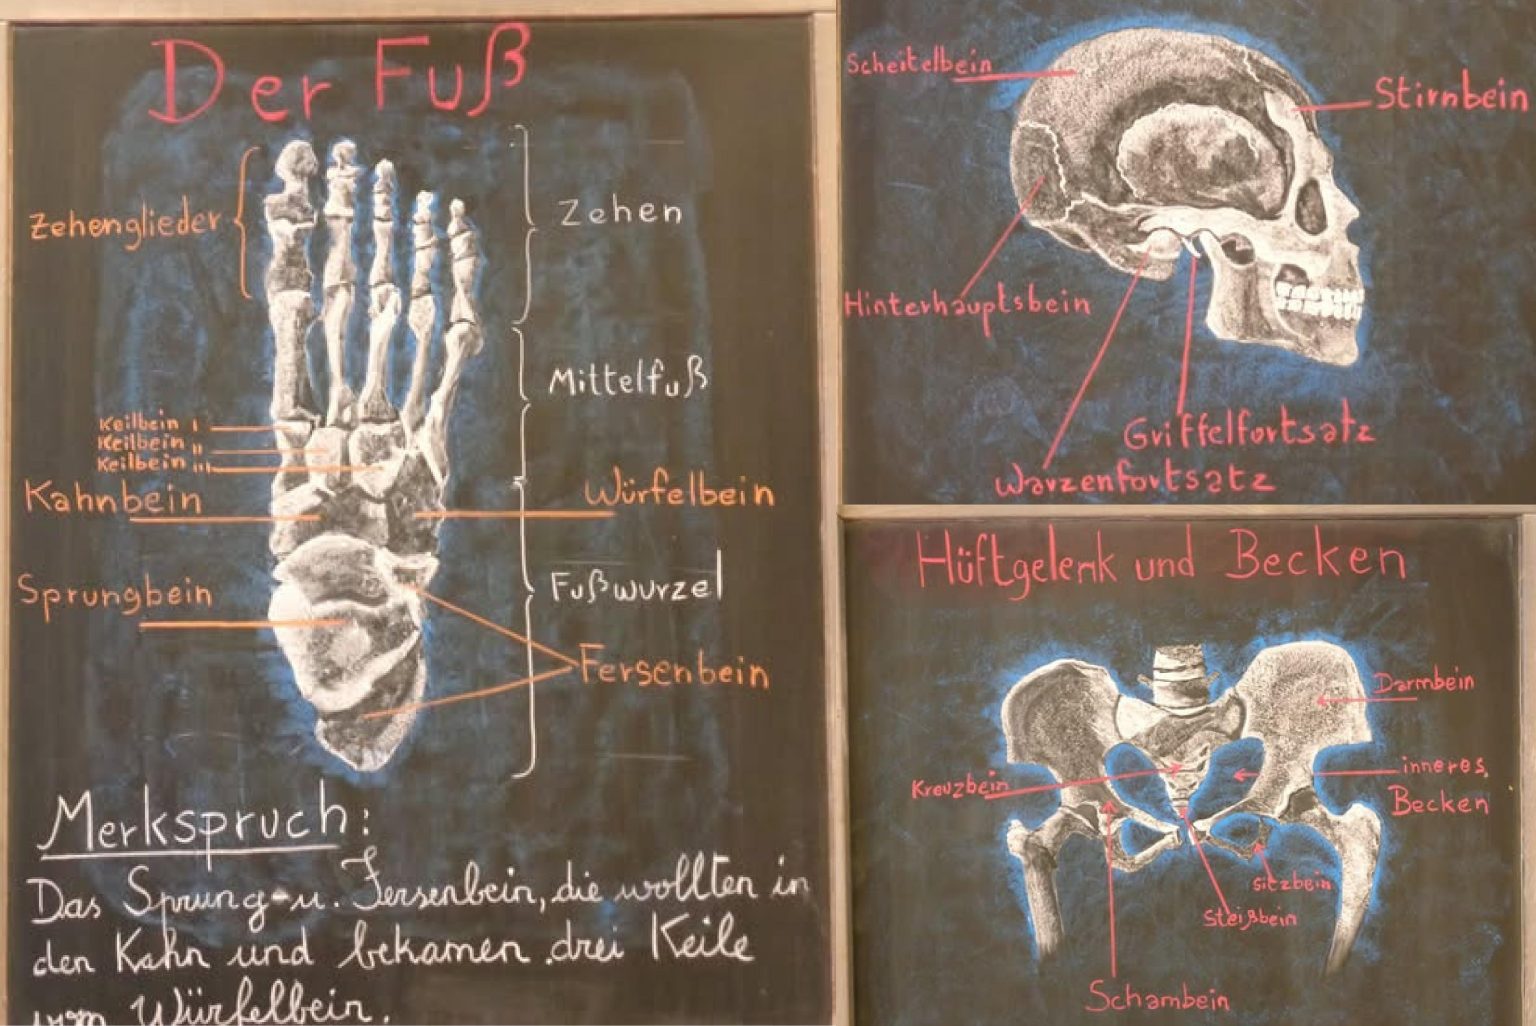 Der Fuß
Zehenglieder
Zehen
Mittelfuß
Keilbein I
Keilbein II
Keilbein III
Kahnbein
Würfelbein
Sprungbein
Fußwurzel
Fersenbein
Merkspruch:
Das Sprung-u. Fersenbein, die wollten in
den Kahn und bekamen drei Keile
vom Würfelbein.
Scheitelbein
Stirnbein
Hinterhauptsbein
Griffelfortsatz
Warzenfortsatz
Hüftgelenk und Becken
Darmbein
inneres
Becken
Kreuzbein
sitzbein
Steißbein
Schambein